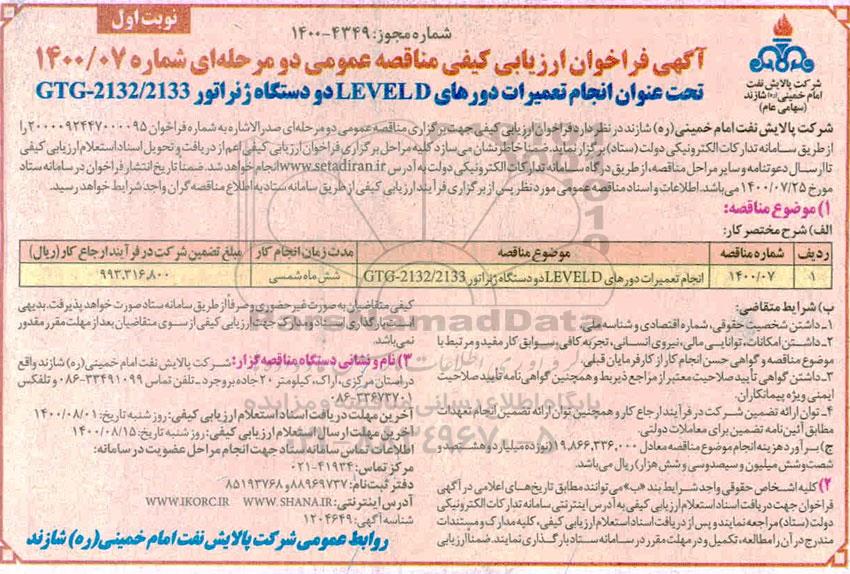 نوبت اول
شماره مجوز: ۱۴۰۰-۴۳۴۹
شرکت پالایش نفت
امام خمینی (ره) شازند
(سهامی عام)
آگهی فراخوان ارزیابی کیفی مناقصه عمومی دو مرحله‌ای شماره ۱۴۰۰/۰۷
تحت عنوان انجام تعمیرات دوره‌ای LEVEL D دو دستگاه ژنراتور GTG-2132/2133
شرکت پالایش نفت امام خمینی (ره) شازند در نظر دارد فراخوان ارزیابی کیفی جهت برگزاری مناقصه عمومی دو مرحله‌ای صدرالاشاره به شماره فراخوان ۲۰۰۰۰۹۲۴۴۷۰۰۰۰۹۵ را
از طریق سامانه تدارکات الکترونیکی دولت (ستاد) برگزار نماید. ضمناً خاطرنشان می‌سازد کلیه مراحل برگزاری فراخوان ارزیابی کیفی اعم از دریافت و تحویل اسناد استعلام ارزیابی کیفی
تا ارسال دعوتنامه و سایر مراحل مناقصه، از طریق درگاه سامانه تدارکات الکترونیکی دولت به آدرس www.setadiran.ir انجام خواهد شد. ضمناً تاریخ انتشار فراخوان در سامانه ستاد
مورخ ۱۴۰۰/۰۷/۲۵ می‌باشد. اطلاعات و اسناد مناقصه عمومی مورد نظر پس از برگزاری فرآیند ارزیابی کیفی از طریق سامانه ستاد به اطلاع مناقصه گران واجد شرایط خواهد رسید.
۱) موضوع مناقصه:
الف) شرح مختصر کار:
ردیف شماره مناقصه موضوع مناقصه مدت زمان انجام کار مبلغ تضمین شرکت در فرآیند ارجاع کار (ریال)
۱ ۱۴۰۰/۰۷ انجام تعمیرات دوره‌ای LEVEL D دو دستگاه ژنراتور GTG-2132/2133 شش ماه شمسی ۹۹۳,۳۱۶,۸۰۰
ب) شرایط متقاضی:
۱ـ داشتن شخصیت حقوقی، شماره اقتصادی و شناسه ملی
۲ـ داشتن امکانات، توانایی مالی، نیروی انسانی، تجربه کافی، سوابق کار مفید و مرتبط با
موضوع مناقصه و گواهی حسن انجام کار از کارفرمایان قبلی.
۳ـ داشتن گواهی تأیید صلاحیت معتبر از مراجع ذیربط و همچنین گواهی نامه تأیید صلاحیت
ایمنی ویژه پیمانکاران.
۴ـ توان ارائه تضمین شرکت در فرآیند ارجاع کار و همچنین توان ارائه تضمین انجام تعهدات
مطابق آئین نامه تضمین برای معاملات دولتی.
ج) برآورد هزینه انجام موضوع مناقصه معادل ۱۹,۸۶۶,۳۳۶,۰۰۰ (نوزده میلیارد و هشتصد و
شصت و شش میلیون و سیصد و سی و شش هزار) ریال می‌باشد.
۲) کلیه اشخاص حقوقی واجد شرایط بند «ب» می‌توانند مطابق تاریخ‌های اعلامی در آگهی
فراخوان جهت دریافت اسناد استعلام ارزیابی کیفی به آدرس اینترنتی سامانه تدارکات الکترونیکی
دولت (ستاد) مراجعه نمایند و پس از دریافت اسناد استعلام ارزیابی کیفی، کلیه مدارک و مستندات
مندرج در آن را مطالعه، تکمیل و در مهلت مقرر در سامانه ستاد بارگذاری نمایند. ضمناً ارزیابی
کیفی متقاضیان به صورت غیر حضوری و صرفاً از طریق سامانه ستاد صورت خواهد پذیرفت. بدیهی
است بارگذاری اسناد و مدارک جهت ارزیابی کیفی از سوی متقاضیان بعد از مهلت مقرر مقدور
نمی‌باشد.
۳) نام و نشانی دستگاه مناقصه گزار: شرکت پالایش نفت امام خمینی (ره) شازند واقع
در استان مرکزی، اراک، کیلومتر ۲۰ جاده بروجرد ـ تلفن تماس ۳۳۴۹۱۰۹۹-۰۸۶ و تلفکس
۰۸۶-۳۳۶۷۳۷۰۱
آخرین مهلت دریافت اسناد استعلام ارزیابی کیفی: روز شنبه تاریخ: ۱۴۰۰/۰۸/۰۱
آخرین مهلت ارسال استعلام ارزیابی کیفی: روز شنبه تاریخ: ۱۴۰۰/۰۸/۱۵
اطلاعات تماس سامانه ستاد جهت انجام مراحل عضویت در سامانه:
مرکز تماس: ۴۱۹۳۴-۰۲۱
دفتر ثبت نام: ۸۸۹۶۹۷۳۷ و ۸۵۱۹۳۷۶۸
آدرس اینترنتی: WWW.IKORC.IR WWW.SHANA.IR
شناسه آگهی: ۱۲۰۴۶۴۹
روابط عمومی شرکت پالایش نفت امام خمینی (ره) شازند
ParsNamadData